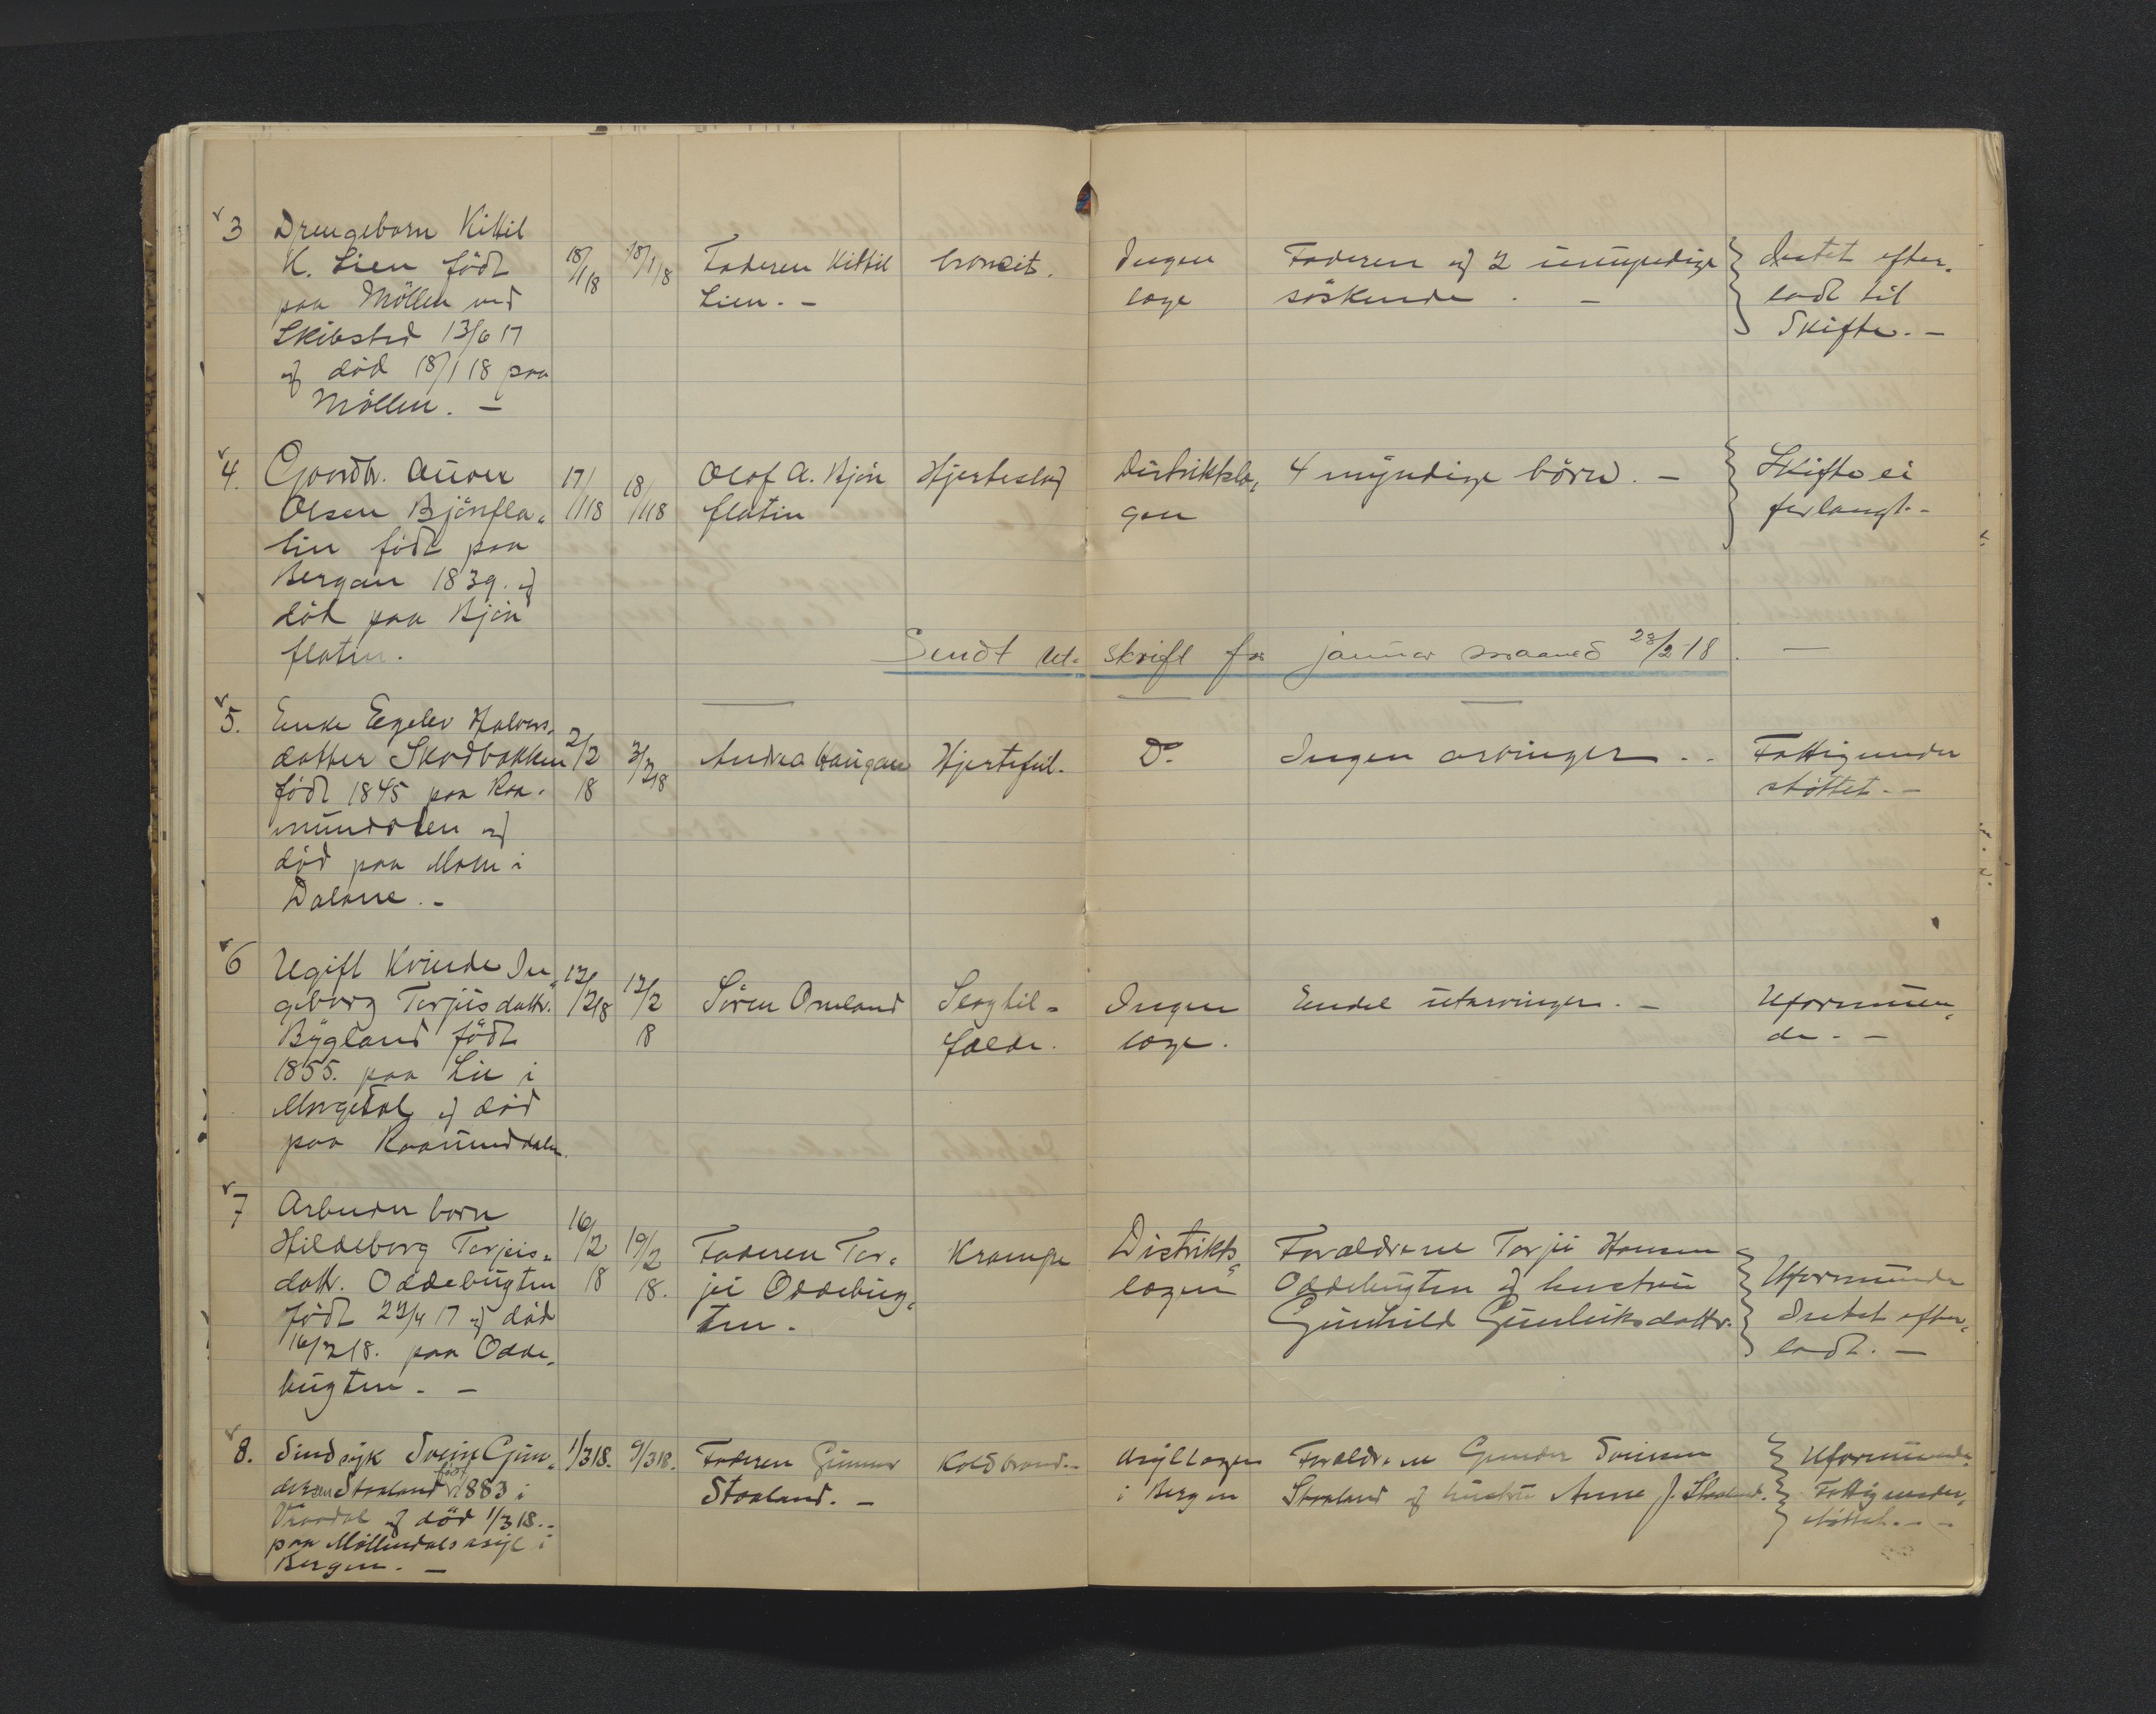 3 Drengebarn Kittil
K. Lien född
paa Möllen ved
Skibsted 13/6 17
og död 18/1 18 paa
Möllen. —
18/1 18
18/1 18
Faderen Kittil
Lien. —
bronкit.
Ingen
læge
Faderen og 2 umyndige
söskende. —
Intet efter-
ladt til
Skifte. —
4. Gaardbr. Auver
Olsen Björnfla-
tin född paa
Bergan 1839. og
död paa Björn
flatin.
17/1 18
18/1 18
Olaf A. Björn
flatin
Hjerteslag
Distriktslæ-
gen
4 myndige börn. —
Skifte ei
forlangt. -
Sendt ut- skrift for januar maaned 28/2 18. —
5. Enke Egelev Halvors-
datter Skodbakken
född 1845 paa Raa-
mundalen og
död paa Moen i
Dalane. -
2/2 18
3/2 18
Andrea Haugan
Hjertefeil.
Do.
Ingen arvinger. .
Fattigunder
støttet. -
6 Ugift Kvinde In-
geborg Terjusdattr.
Bygland född
1855. paa Lie i
Morgedal og död
paa Raamunddalen.
12/2 18
12/2 18
Sören Omland
Slagtil-
fælde.
Ingen
læge.
Endel utarvinger. —
Uformuen-
de. —
7 Arbeider barn
Hildeborg Terjeis-
dattr. Oddebugten
född 22/4 17 og död
16/2 18. paa Odde-
bugten. —
16/2 18
19/2 18.
Faderen Tar-
jei Oddebug-
ten.
Krampe
Distrikts-
lægen
Forældrene Tarjei Hansen
Oddebugten og hustru
Gunhild Gunleiksdattr.
Uformuende
Intet efter-
ladt. —
8. Sindsyk Svein Gun-
dersen Straaland född 1883 i
Vraadal og död 1/3 18. -
paa Möllendals asyl i
Bergen. —
1/3 18.
9/3 18.
Faderen Gunnar
Straaland. —
Koldbrand. -
Asyllægen
i Bergen
Forældrene Gunder Sveinsen
Straaland og hustru Anne J. Straaland.
Uformuende.
Fattigunder-
støttet. -